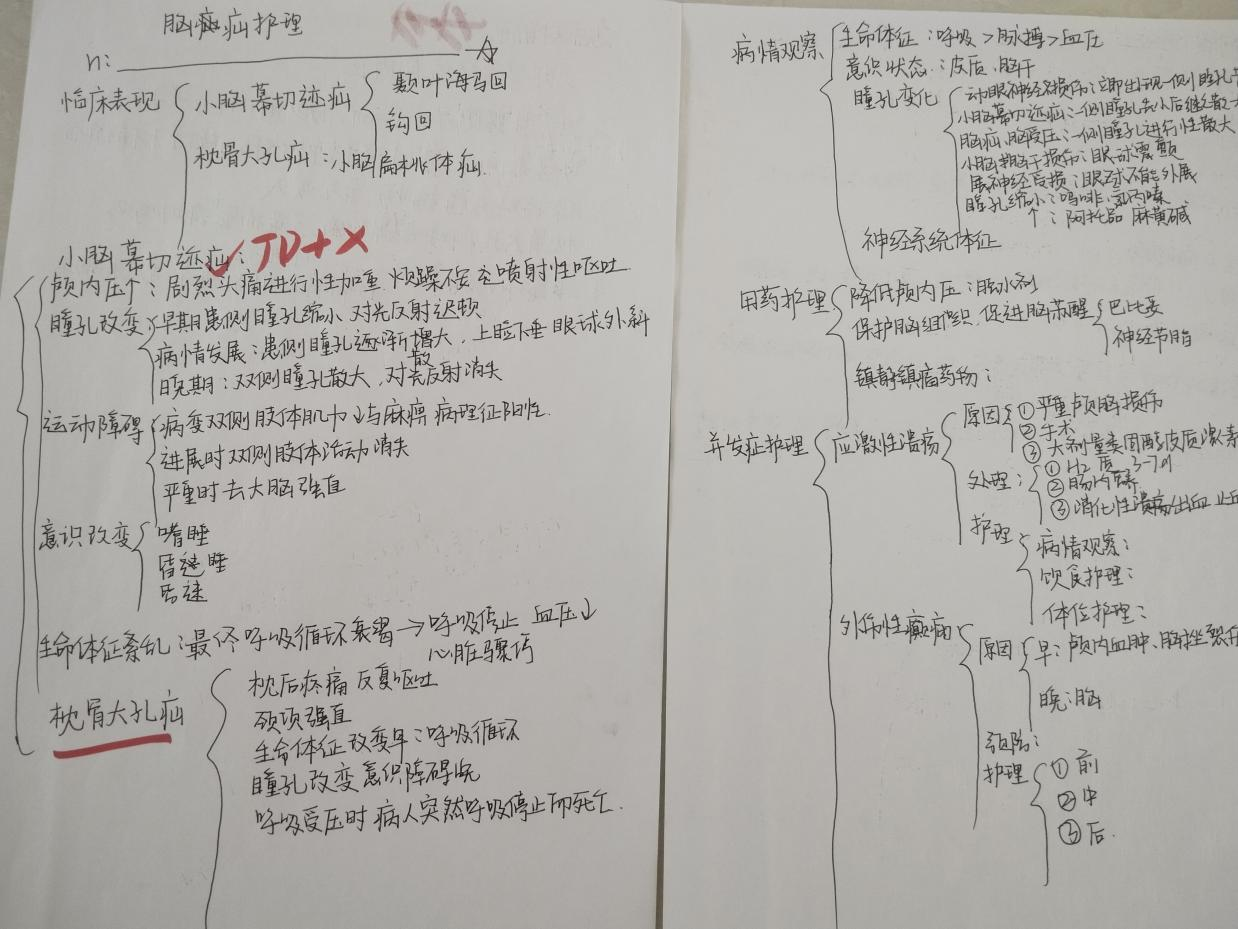 脑疝护理
n:
临床表现
小脑幕切迹疝
颞叶海马回
钩回
枕骨大孔疝：小脑扁桃体疝.
小脑幕切迹疝：
颅内压↑：剧烈头痛进行性加重 烦躁不安 喷射性呕吐
瞳孔改变
早期患侧瞳孔缩小 对光反射迟顿
病情发展：患侧瞳孔逐渐增大，上睑下垂 眼球外斜
散
晚期：双侧瞳孔散大，对光反射消失
运动障碍
病变双侧肢体肌力↓与麻痹 病理征阳性.
进展时双侧肢体活动消失
严重时去大脑强直
意识改变
嗜睡
昏迷
生命体征紊乱：最终呼吸循环衰竭→呼吸停止 血压↓
心脏骤停
枕骨大孔疝
枕后疼痛 反复呕吐
颈项强直
生命体征改变早：呼吸循环
瞳孔改变 意识障碍晚
呼吸受压时 病人突然呼吸停止而死亡.
病情观察
生命体征：呼吸>脉搏>血压
意识状态：皮质、脑干
瞳孔变化
动眼神经损伤：立即出现一侧瞳孔
小脑幕切迹疝：一侧瞳孔先小后继之散大
脑疝、脑受压：一侧瞳孔进行性散大
小脑或脑干损伤：眼球震颤
展神经受损：眼球不能外展
瞳孔缩小：吗啡、氯丙嗪
↑：阿托品 麻黄碱
神经系统体征
用药护理
降低颅内压：脱水剂
保护脑组织、促进脑苏醒
巴比妥
神经节脂
镇静镇痛药物：
并发症护理
应激性溃疡
原因
①严重颅脑损伤
②手术
③大剂量类固醇皮质激素
处理：
① H2 3-7d
②肠内
③消化性溃疡出血 止血
护理
病情观察：
饮食护理：
体位护理：
外伤性癫痫
原因
早：颅内血肿、脑挫裂伤
晚：脑
预防：
护理
①前
②中
③后.